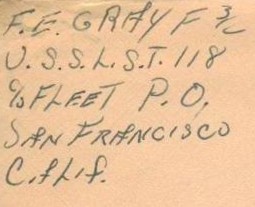 F.E. GRAY F 3/c
U.S.S.L.S.T. 118
c/o FLEET P.O.
SAN FRANCISCO
CALIF.